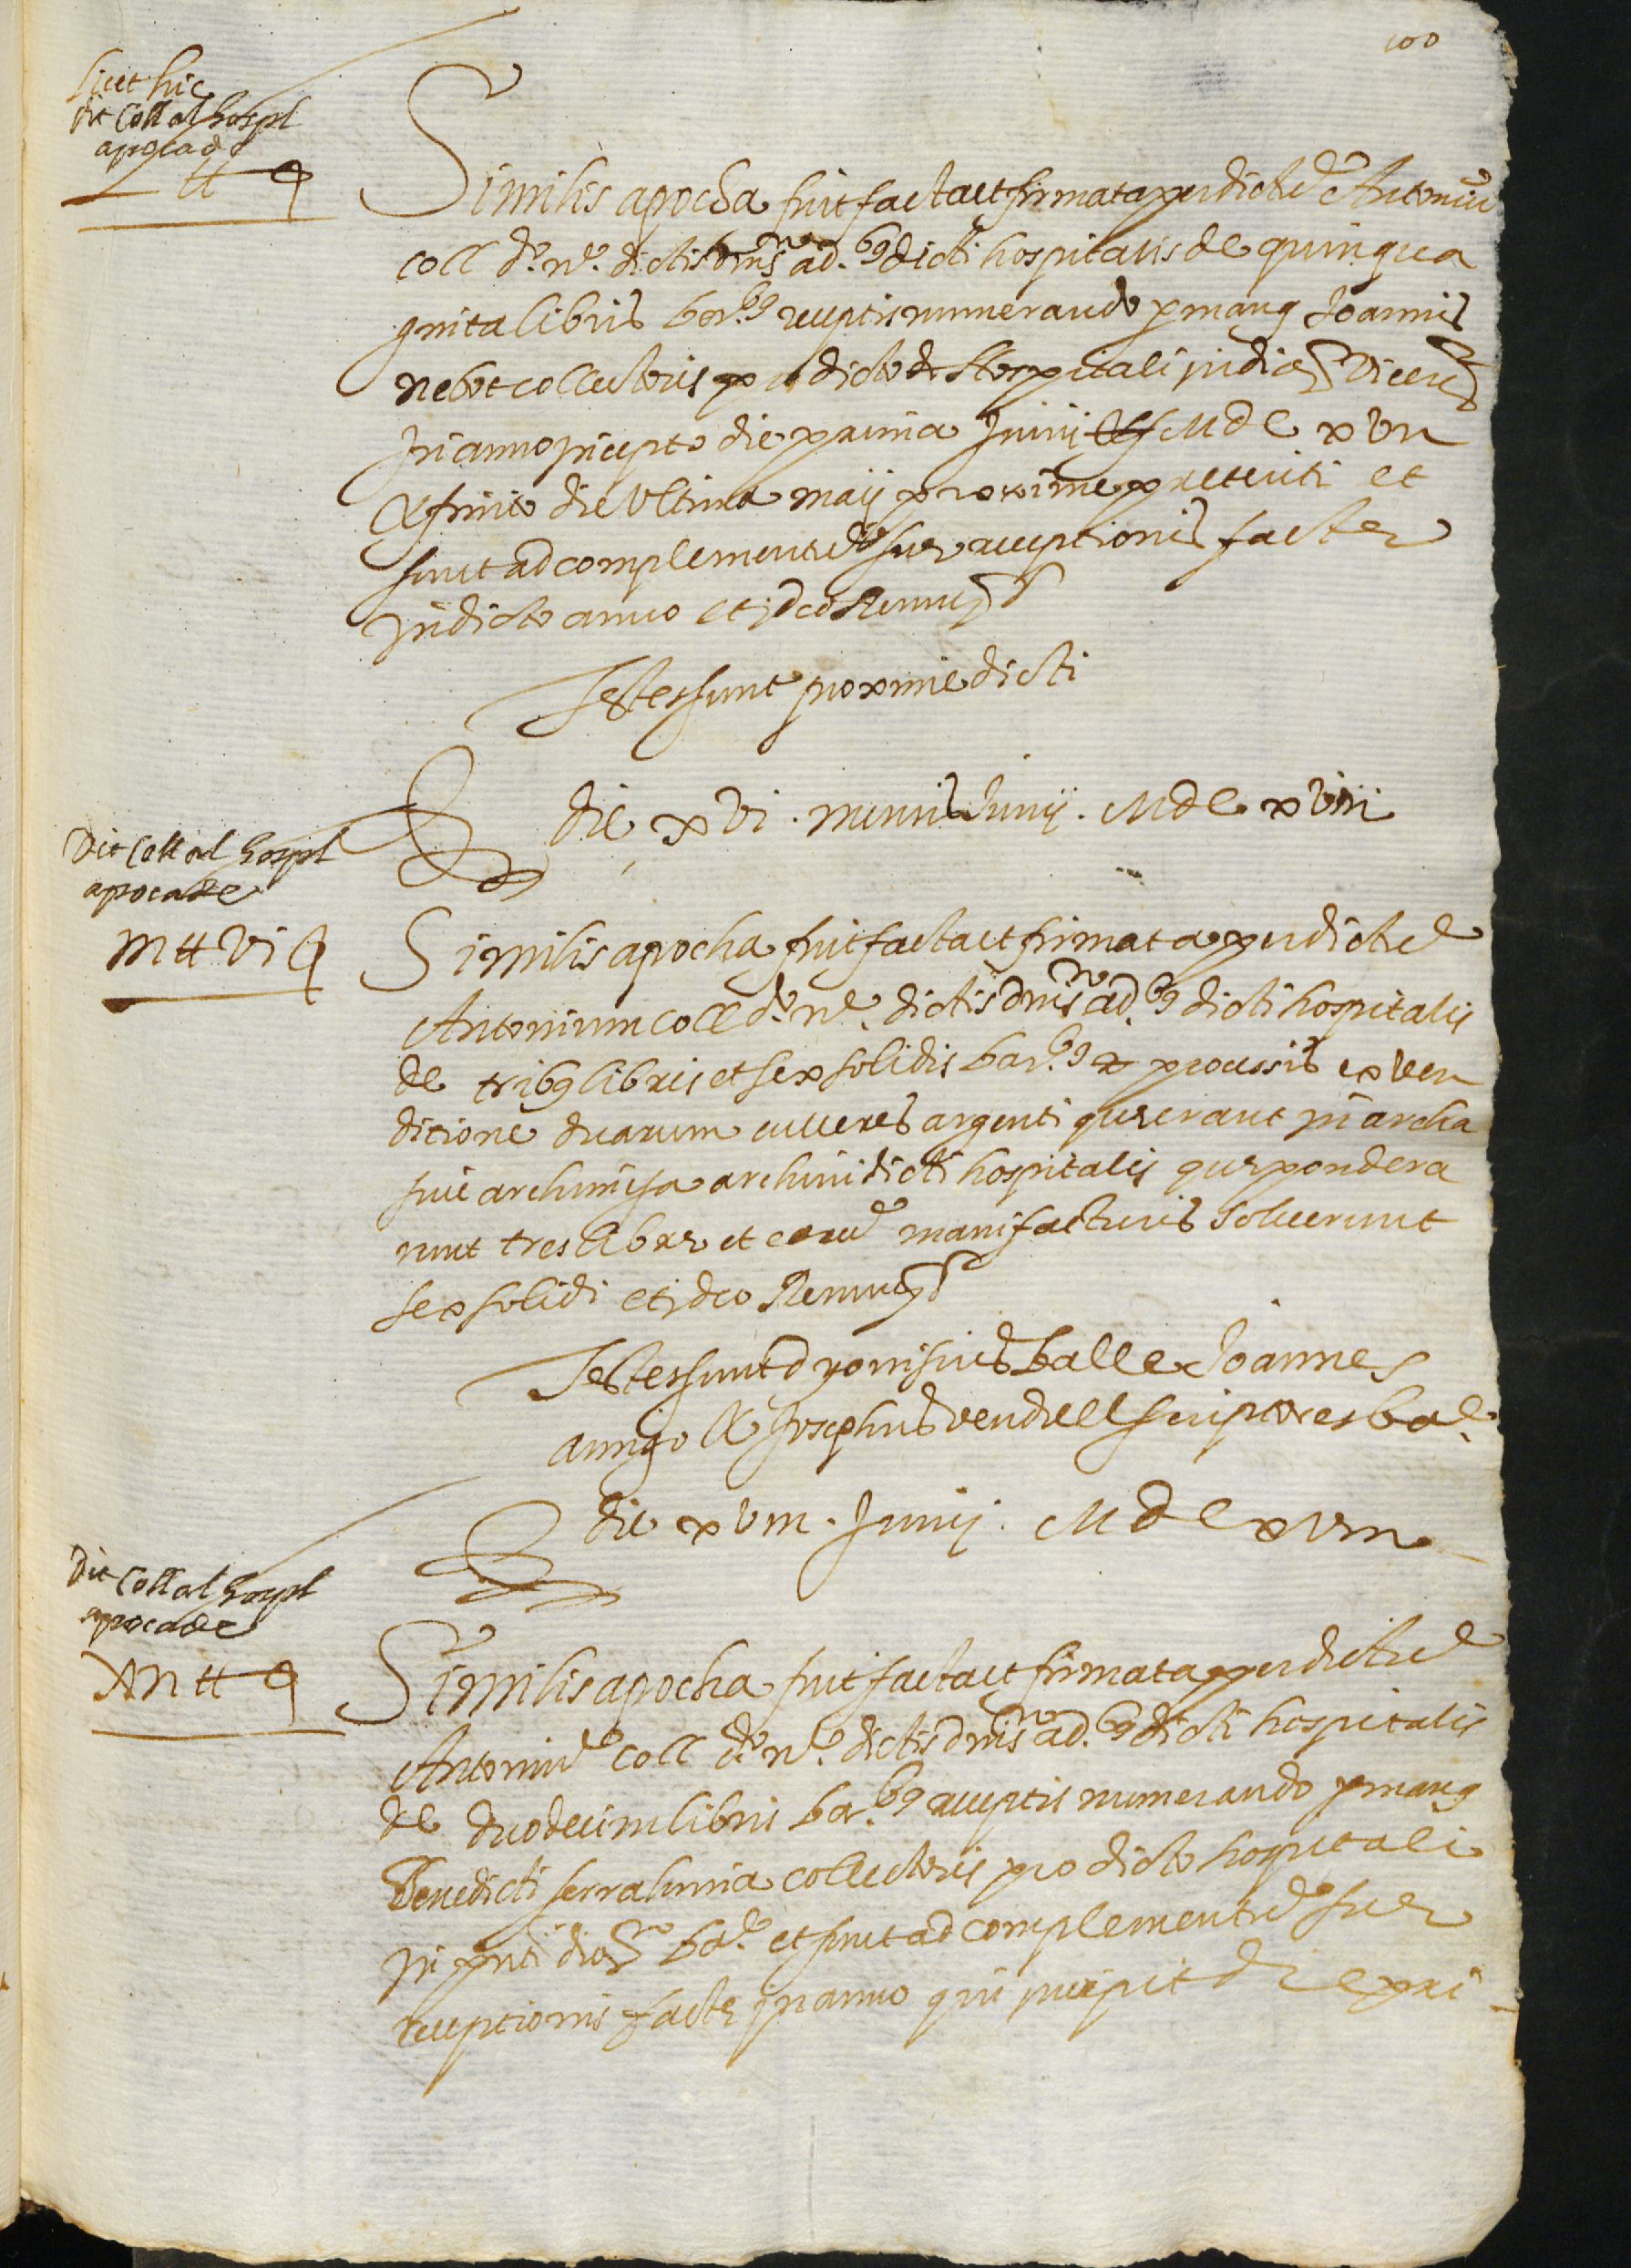 100
Licet hic
dit Coll al hospl
apoca de
L ₶ ꝗ
Similis apocha fuit facta et firmata per dictũ Antoniũ
coll d.º n.º dictis dnis ad.bꝰ dicti hospitalis de quinqua
ginta libris bar.bꝰ receptis numerando p manꝰ Joannis
nebot collectoris pro dicto Hospitali in dioc Vicen
in anno incepto die prima Junij MDCxvii
& finito die Ultima maij proxime preteriti et
sunt ad complementũ sue receptionis facte
in dicto anno et ideo Renun
Testes sunt proxime dicti
die xvi. mensis Junij. MDCxviii
Dit Coll al hospl
apoca de
iii ₶ vi ꝗ
Similis apocha fuit facta et firmata per dictũ
Antonium coll d.º n.º dictis dnis ad.bꝰ dicti hospitalis
de tribꝰ libris et sex solidis bar.bꝰ processis ex ven
ditione duarum culleres argenti que erant in archa
sive archimesa archivi dicti hospitalis que pondera
runt tres libre et earũ manifacturis solverunt
sex solidi et ideo Renun
Testes sunt dyonisius balle Joannes
amigo & Josephus vendrell scriptores ba.
die xviii. Junij. MDCxviii
Dit Coll al hospl
apoca de
xii ₶ ꝗ
Similis apocha fuit facta et firmata per dictũ
Antoniũ coll d.º n.º dictis dnis ad.bꝰ dicti hospitalis
de duodecim libris bar.bꝰ receptis numerando p manꝰ
Benedicti serralunia collectoris pro dicto hospitali
in pnti dioc ba. et sunt ad complementũ sue
receptionis facte in anno qui incipit die pri